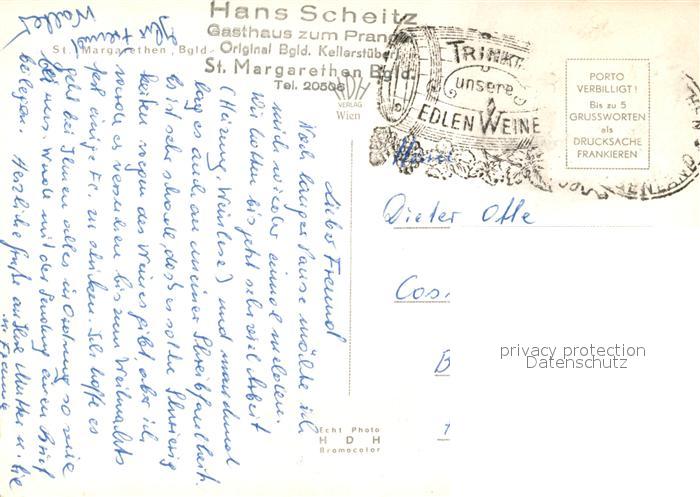 Hans Scheitz
Gasthaus zum Pranger
St. Margarethen, Bgld. - Original Bgld. Kellerstüberl
St. Margarethen Bgld.
Tel. 20506
HDH
VERLAG
Wien
TRINKT
unsere
EDLEN WEINE
PORTO
VERBILLIGT!
Bis zu 5
GRUSSWORTEN
als
DRUCKSACHE
FRANKIEREN
Herrn
Dieter Otte
Cos
B
privacy protection
Datenschutz
Echt Photo
HDH
Bromocolor
Lieber Freund
Nach langer Pause möchte ich
mich wieder einmal melden.
Wir hatten bis jetzt sehr viel Arbeit
(Heizung, Weinlese) und manchmal
lag es auch an meiner Schreibfaulheit.
Es ist sehr schade, daß es solche
wegen des Weines gibt, aber ich
werde es versuchen bis zum Weihnachts
fest einige Fl. zu schicken. Ich hoffe es
geht bei Ihnen alles in Ordnung so wie
bei uns. Werde mit der Sendung einen Brief
beilegen. Herzliche Grüße an Ihre Mutter u. Sie